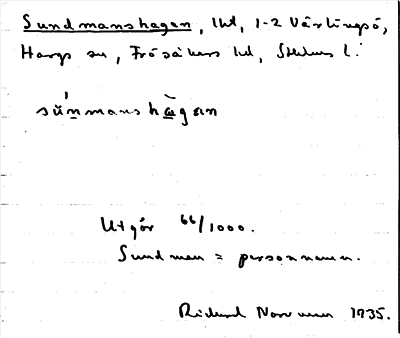 Sundmanshagen, lht, 1-2 Värlingsö,
Hargs sn, Frösåkers hd, Sthlms l.
súnmanshàgan
Utgör 66/1000.
Sundman = personnamn.
Rickard Norrman 1935.